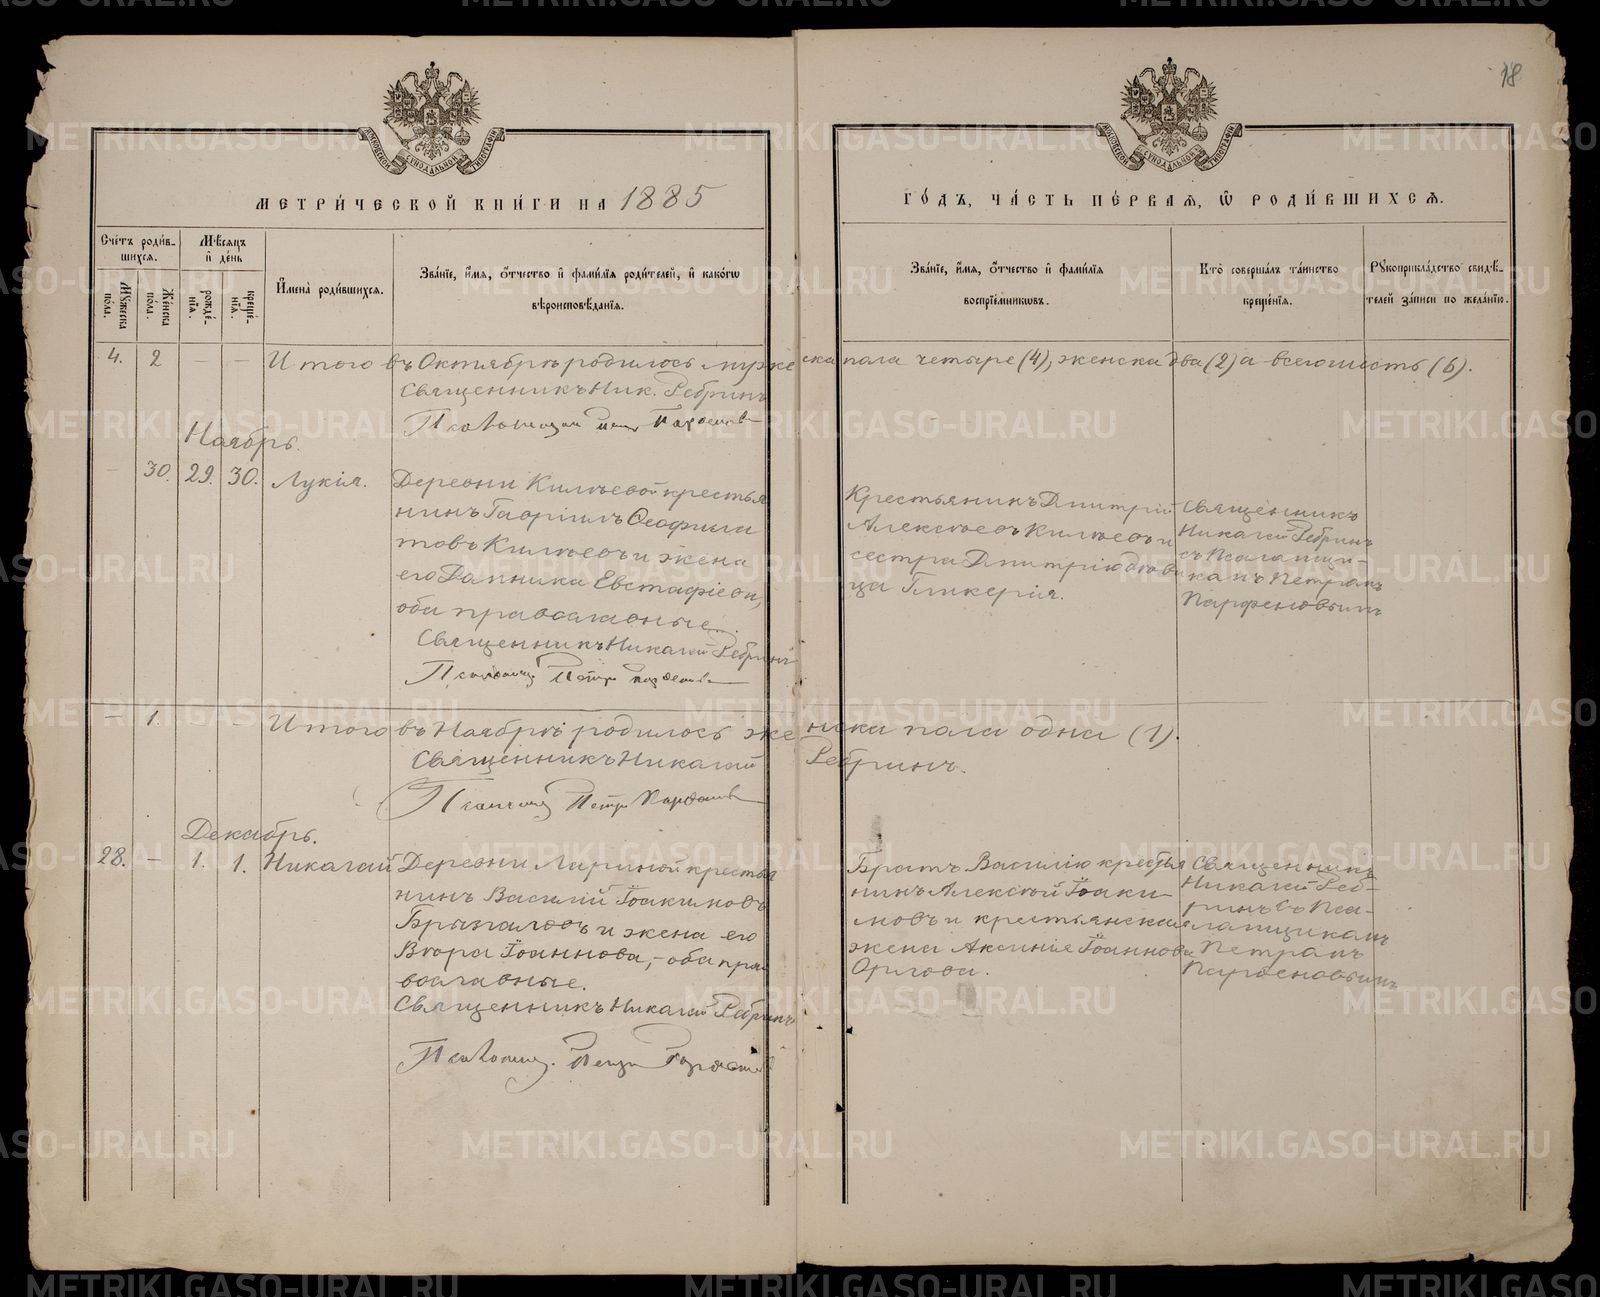 18
МОСКОВСКОЙ СѴНОДАЛЬНОЙ ТИПОГРАФІИ
МОСКОВСКОЙ СѴНОДАЛЬНОЙ ТИПОГРАФІИ
МЕТРИ́ЧЕСКОЙ КНИ́ГИ НА 1885
ГО́ДЪ, ЧА́СТЬ ПЕ́РВАѦ, Ѿ РОДИ́ВШИХСѦ.
Сче́тъ роди́в-
шихсѧ.
Мꙋ́жеска по́ла.
Же́нска по́ла.
Мѣ́сѧцъ
и҆ де́нь
рожде́-
нїѧ.
креще́-
нїѧ.
И҆мена̀ роди́вшихсѧ.
Зва́нїе, и҆́мѧ, ѻ҆́тчество и҆ фами́лїѧ роди́телей, и҆ како́гѡ
вѣроисповѣ́данїѧ.
Зва́нїе, и҆́мѧ, ѻ҆́тчество и҆ фами́лїѧ
воспрїе́мникѡвъ.
Кто̀ соверша́лъ та́инство
креще́нїѧ.
Рꙋкоприкла́дство свидѣ́-
телей за́писи по жела́нїю.
4. 2 — — Итого въ Октябрѣ родилось мужеска пола четыре (4), женска два (2) а всего шесть (6).
Священникъ Ник. Ребринъ
Псаломщикъ Петръ Парѳеновъ
Ноябрь.
— 30. 29. 30. Лукія.
Деревни Килѣевой крестья
нинъ Гавріилъ Ѳеофила
товъ Килѣевъ и жена
его Домника Евстафіева,
оба православные.
Священникъ Николай Ребринъ
Псаломщ Петръ Парѳеновъ
Крестьянинъ Дмитрій
Алексѣевъ Килѣевъ и
сестра Дмитрію дѣви
ца Гликерія.
Священникъ
Николай Ребринъ
съ Псаломщи-
комъ Петромъ
Парѳеновымъ
— 1. — Итого въ Ноябрѣ родилось женска пола одна (1).
Священникъ Николай Ребринъ.
Псаломщ Петръ Парѳеновъ
Декабрь.
28. — 1. 1. Николай
Деревни Лариной крестья
нинъ Василій Іоакимовъ
Брызгаловъ и жена его
Вѣра Іоаннова, - оба пра
вославные.
Священникъ Николай Ребринъ
Псаломщ. Петръ Парѳеновъ
Братъ Василію крестья
нинъ Алексѣй Іоаки
мовъ и крестьянская
жена Аксинія Іоаннова
Орлова.
Священникъ
Николай Реб-
ринъ съ Пса-
ломщикомъ
Петромъ
Парѳеновымъ
METRIKI.GASO-URAL.RU